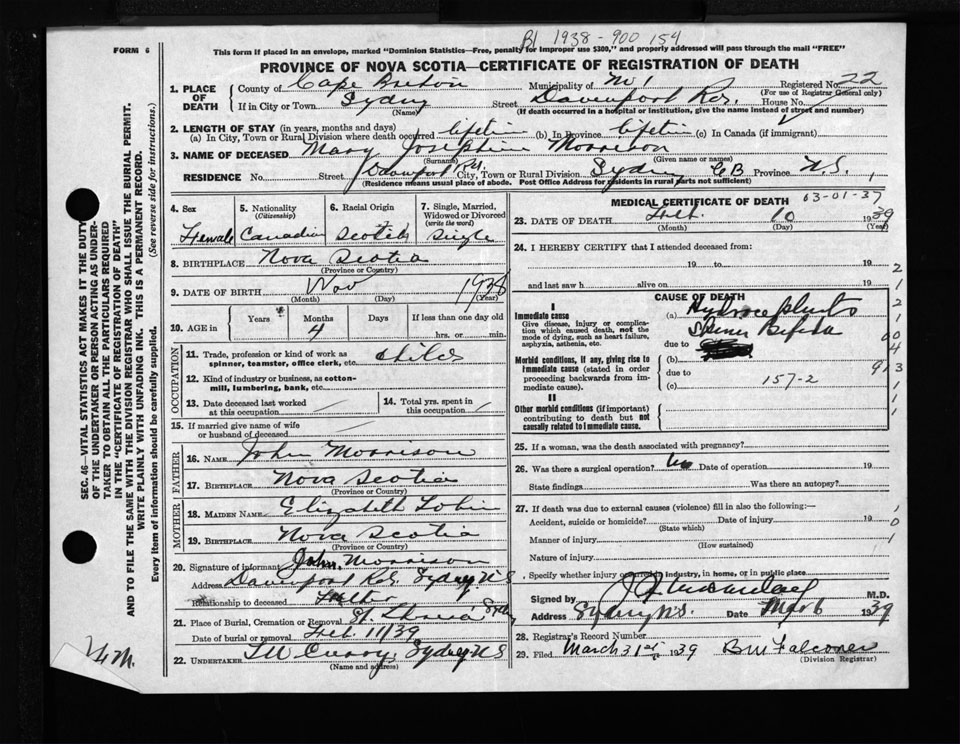 B1 1938 - 900 154
FORM 6
This form if placed in an envelope, marked "Dominion Statistics—Free, penalty for improper use $300," and properly addressed will pass through the mail "FREE"
PROVINCE OF NOVA SCOTIA—CERTIFICATE OF REGISTRATION OF DEATH
1. PLACE OF DEATH
County of Cape Breton Municipality of No 1 Registered No. 22
(For use of Registrar General only)
If in City or Town Sydney Street Davenport Rd. House No.
(Name) (If death occurred in a hospital or institution, give the name instead of street and number)
2. LENGTH OF STAY (in years, months and days)
(a) In City, Town or Rural Division where death occurred lifetime (b) In Province lifetime (c) In Canada (if immigrant)
3. NAME OF DECEASED Mary Josephine Morrison
(Surname) (Given name or names)
RESIDENCE No. Street Davenport Rd City, Town or Rural Division Sydney CB Province N.S.
(Residence means usual place of abode. Post Office Address for residents in rural parts not sufficient)
4. Sex
Female
5. Nationality
(Citizenship)
Canadian
6. Racial Origin
Scotch
7. Single, Married, Widowed or Divorced
(write the word)
Single
8. BIRTHPLACE Nova Scotia
(Province or Country)
9. DATE OF BIRTH Nov 1938
(Month) (Day) (Year)
10. AGE in
Years Months Days If less than one day old
4 hrs. or min.
OCCUPATION
11. Trade, profession or kind of work as spinner, teamster, office clerk, etc. child
12. Kind of industry or business, as cotton-mill, lumbering, bank, etc.
13. Date deceased last worked at this occupation
14. Total yrs. spent in this occupation
15. If married give name of wife or husband of deceased
FATHER
16. Name John Morrison
17. Birthplace Nova Scotia
(Province or Country)
MOTHER
18. Maiden Name Elizabeth Tobin
19. Birthplace Nova Scotia
(Province or Country)
20. Signature of informant John Morrison
Address Davenport Rd. Sydney N S
Relationship to deceased Father
21. Place of Burial, Cremation or Removal St. Sydney
Date of burial or removal Feb 11/39
22. UNDERTAKER T W Curry, Sydney N S
(Name and address)
MEDICAL CERTIFICATE OF DEATH
03-01-37
23. DATE OF DEATH Feb. 10 1939
(Month) (Day) (Year)
24. I HEREBY CERTIFY that I attended deceased from:
19 to 19
and last saw h alive on 19
CAUSE OF DEATH
I
Immediate cause
Give disease, injury or complication which caused death, not the mode of dying, such as heart failure, asphyxia, asthenia, etc.
(a) Hydrocephalus
Spina Bifida
due to
Morbid conditions, if any, giving rise to immediate cause (stated in order proceeding backwards from immediate cause).
(b)
due to
(c) 157-2
II
Other morbid conditions (if important) contributing to death but not causally related to immediate cause.
25. If a woman, was the death associated with pregnancy?
26. Was there a surgical operation? No Date of operation 19
State findings Was there an autopsy?
27. If death was due to external causes (violence) fill in also the following:—
Accident, suicide or homicide? Date of injury 19
(State which)
Manner of injury
(How sustained)
Nature of injury
Specify whether injury occurred in industry, in home, or in public place
Signed by M.D.
Address Sydney N.S. Date Mar 6 1939
28. Registrar's Record Number
29. Filed March 31st 1939 B W Falconer
(Division Registrar)
SEC. 46—VITAL STATISTICS ACT MAKES IT THE DUTY OF THE UNDERTAKER OR PERSON ACTING AS UNDERTAKER TO OBTAIN ALL THE PARTICULARS REQUIRED IN THE "CERTIFICATE OF REGISTRATION OF DEATH" AND TO FILE THE SAME WITH THE DIVISION REGISTRAR WHO SHALL ISSUE THE BURIAL PERMIT.
WRITE PLAINLY WITH UNFADING INK. THIS IS A PERMANENT RECORD.
Every item of information should be carefully supplied. (See reverse side for instructions.)